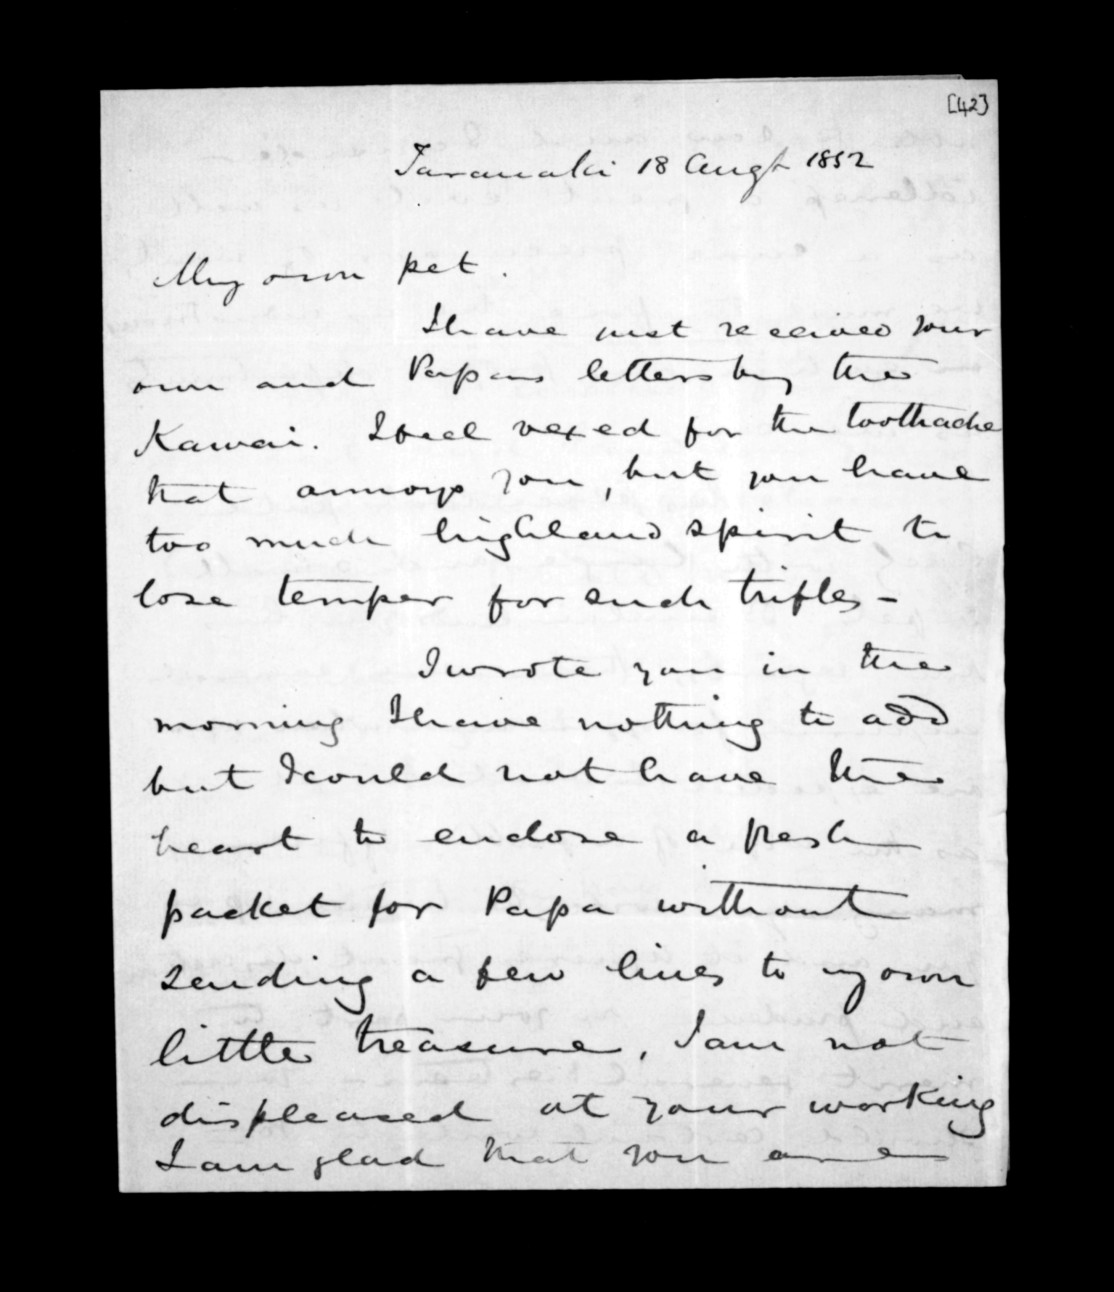 [42]
Taranaki 18 Augt 1852
My own pet.
I have just received your
own and Papas letters by the
Kawai. I feel vexed for the toothache
that annoys you, but you have
too much highland spirit to
lose temper for such trifles -
I wrote you in the
morning I have nothing to add
but I could not have the
heart to enclose a fresh
packet for Papa without
sending a few lines to my own
little treasure, I am not
displeased at your working
I am glad that you are